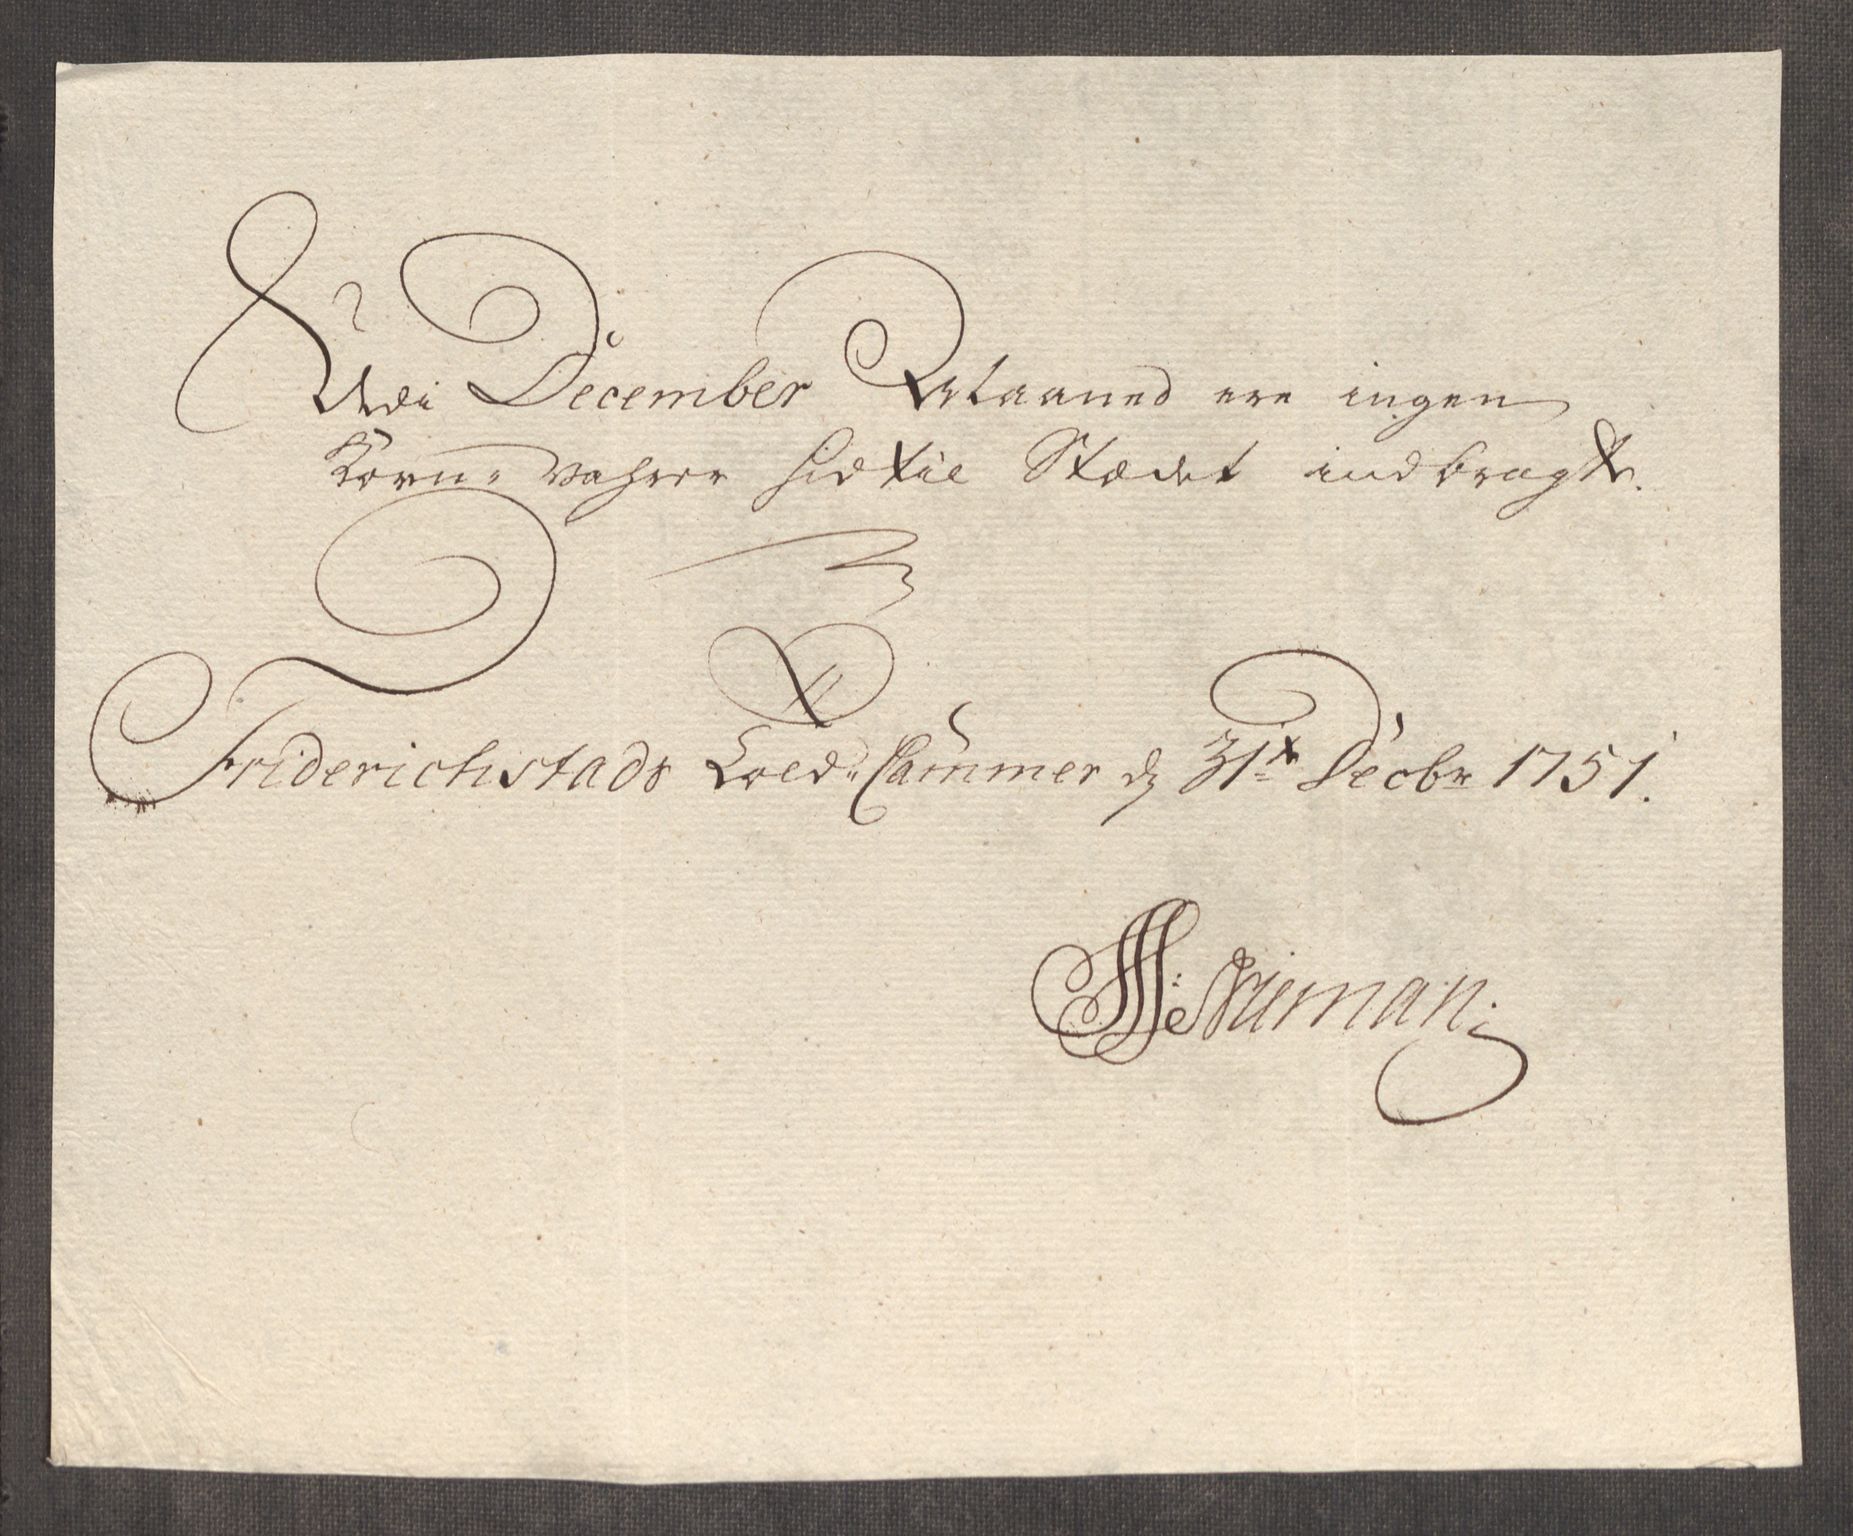 Udi December Maaned ere ingen
Korn-Vahrer hid til Stædet indbragte.
Friderichstads Told-Cammer d 31te Decbr 1751.
Neuman